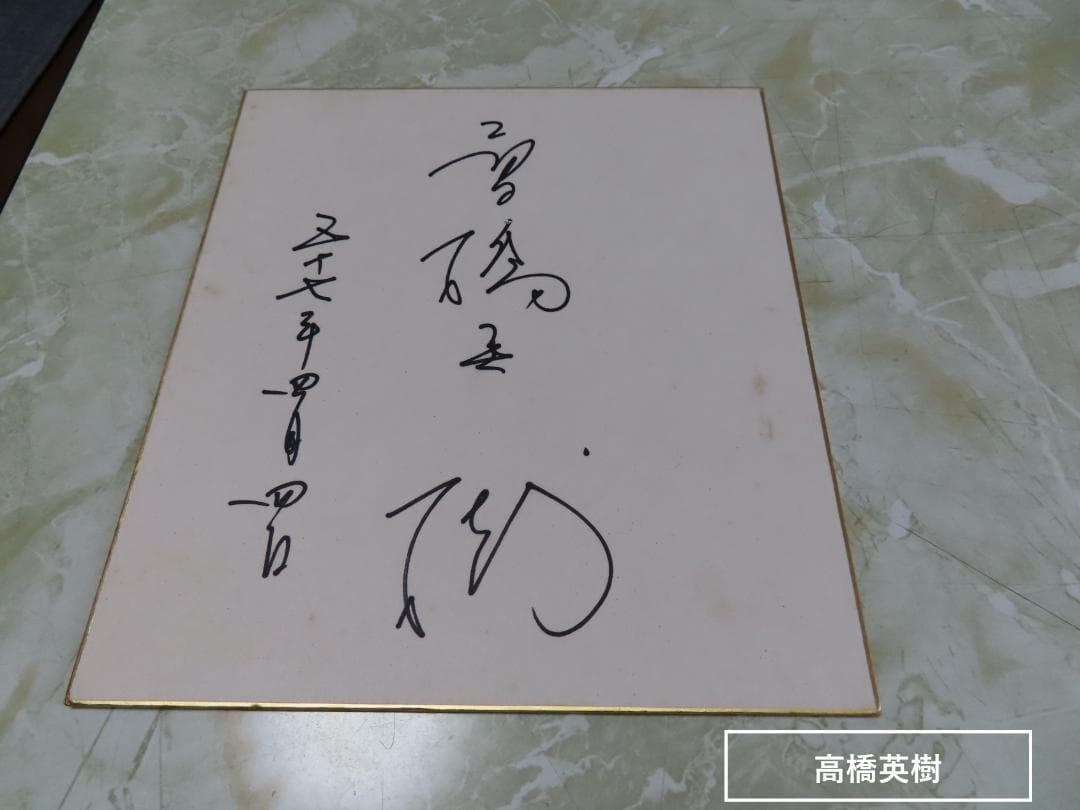 高橋英樹
五十七年四月四日
高橋英樹